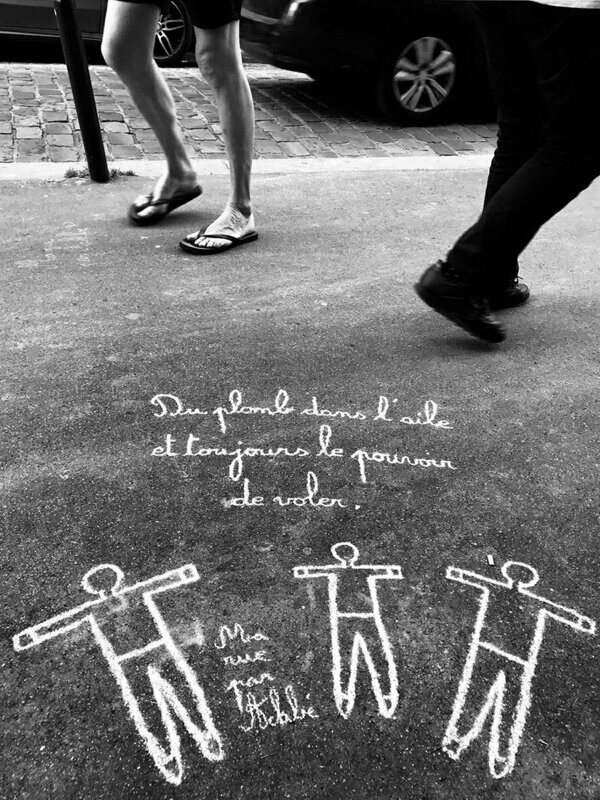 Du plomb dans l'aile
et toujours le pouvoir
de voler.
Ma
rue
par
Achbé